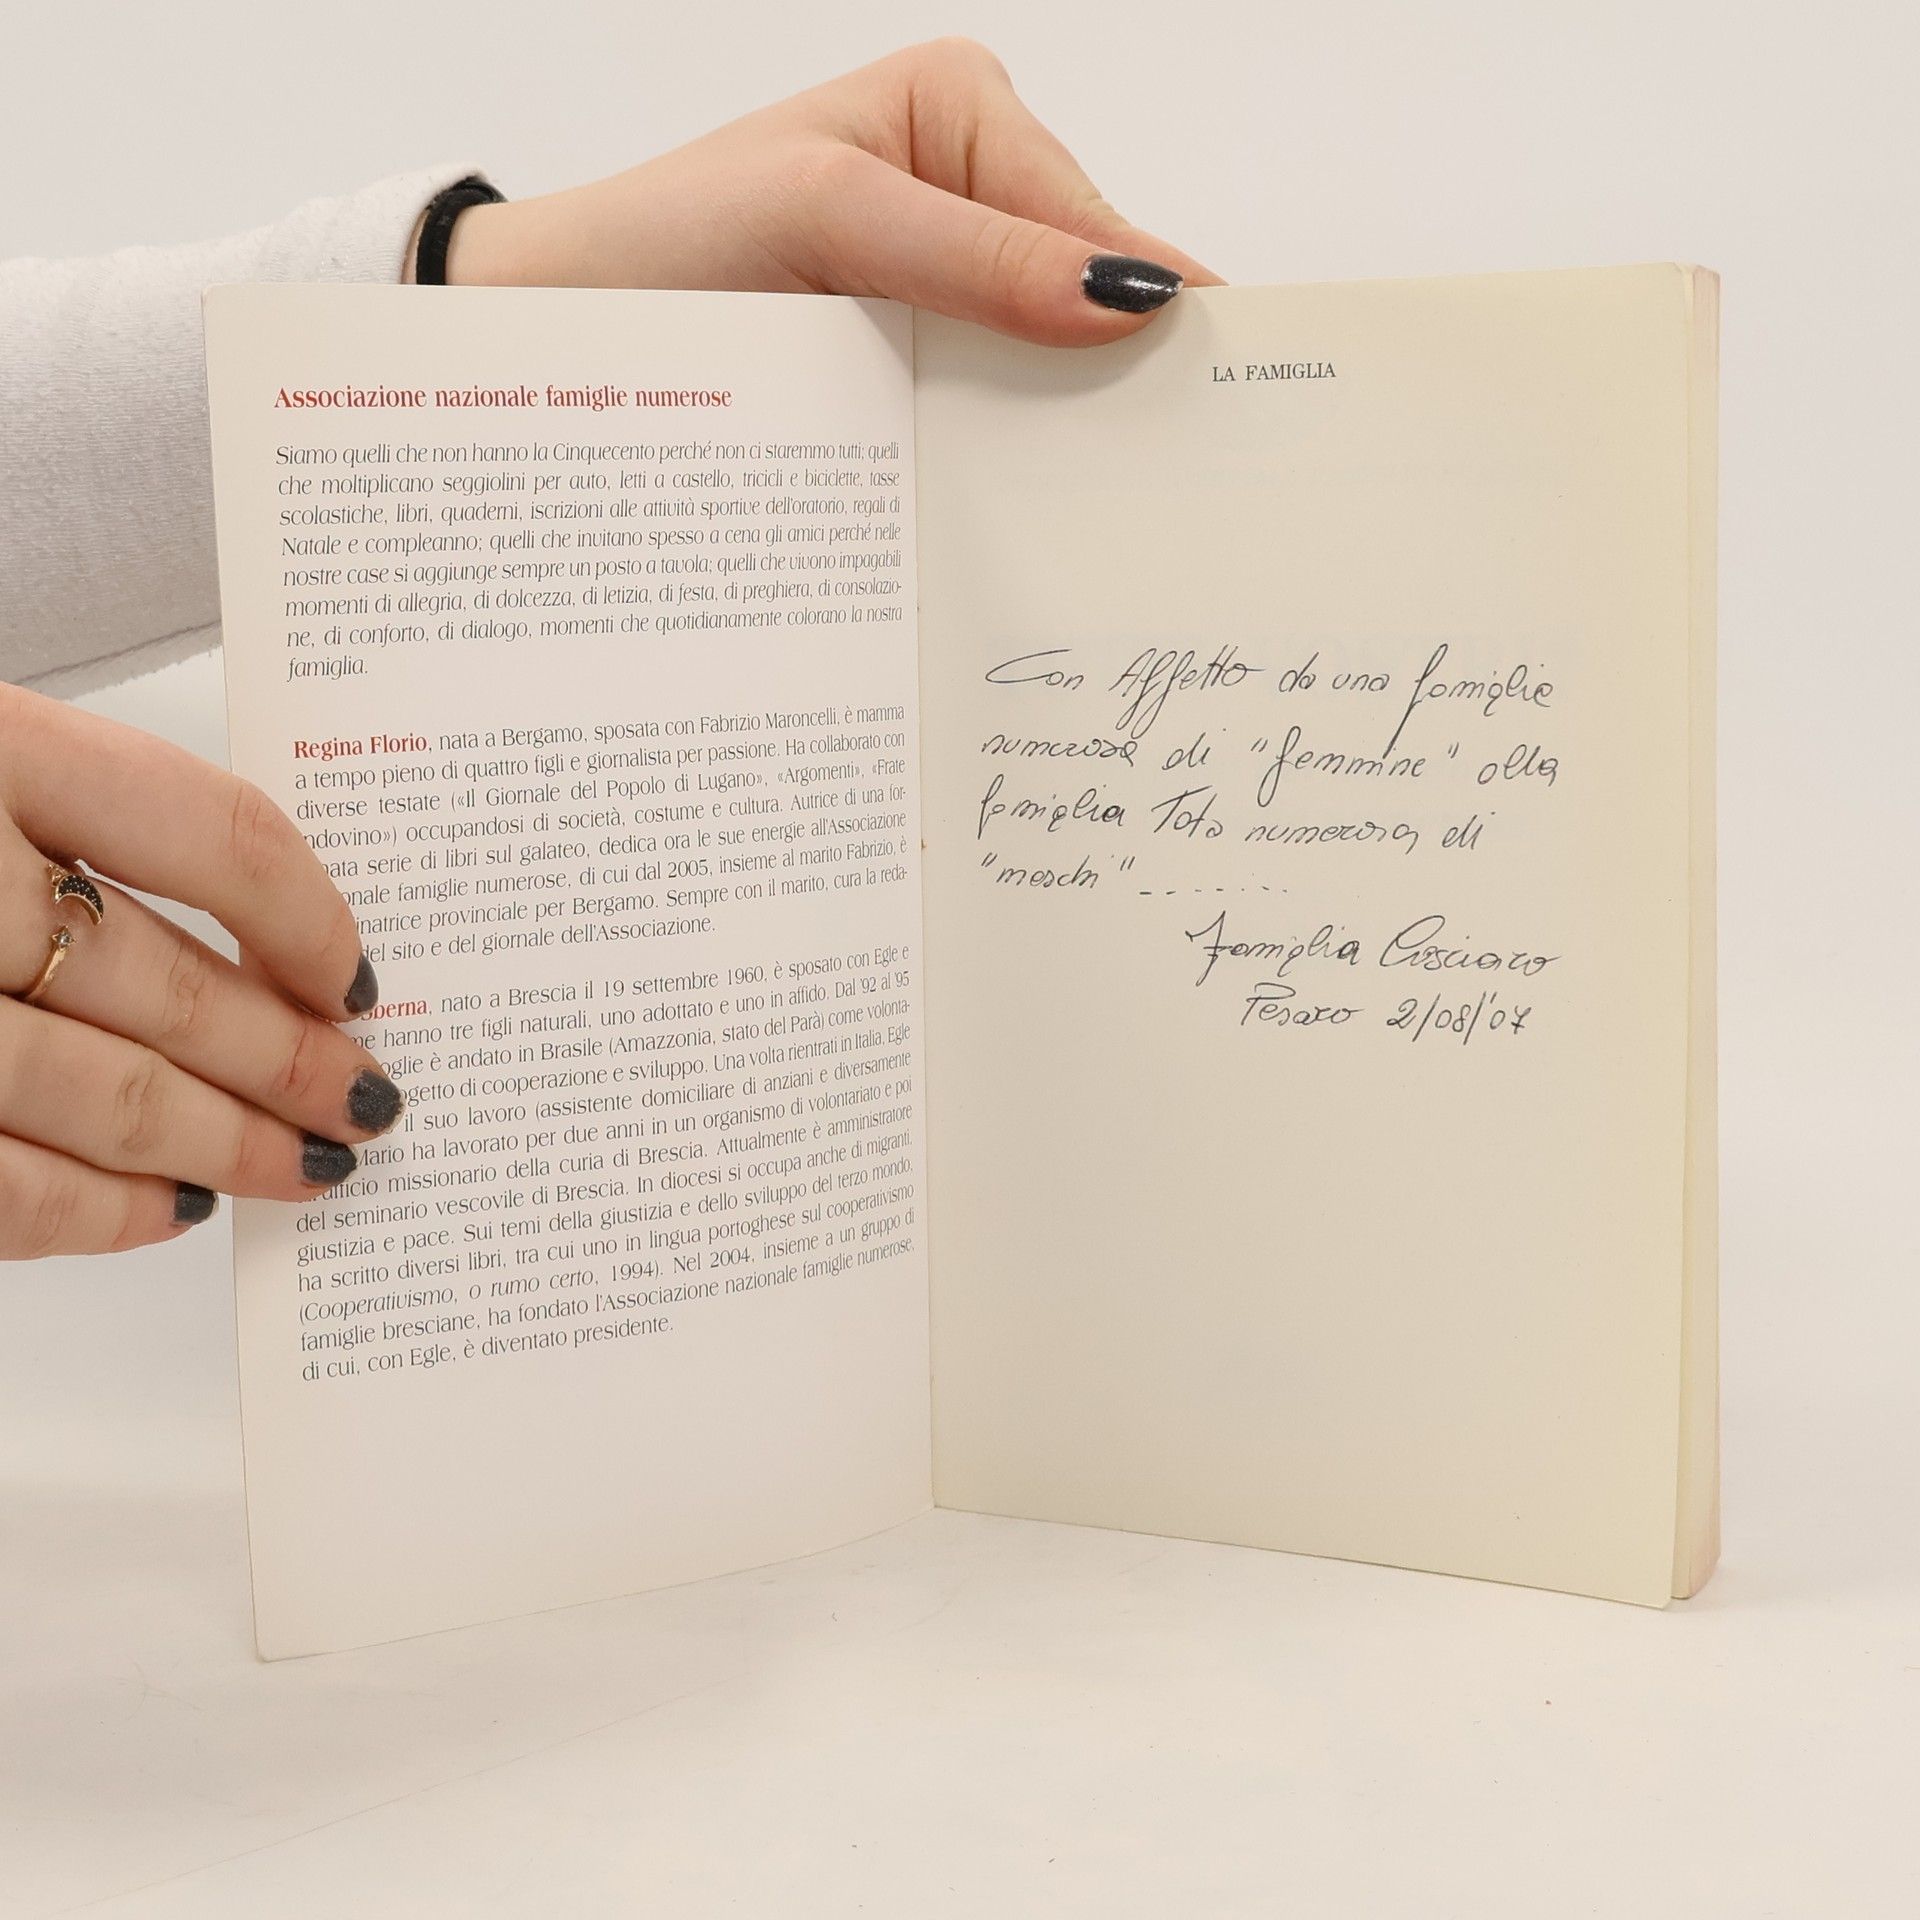 Associazione nazionale famiglie numerose
Siamo quelli che non hanno la Cinquecento perché non ci staremmo tutti; quelli
che moltiplicano seggiolini per auto, letti a castello, tricicli e biciclette, tasse
scolastiche, libri, quaderni, iscrizioni alle attività sportive dell'oratorio, regali di
Natale e compleanno; quelli che invitano spesso a cena gli amici perché nelle
nostre case si aggiunge sempre un posto a tavola; quelli che vivono impagabili
momenti di allegria, di dolcezza, di letizia, di festa, di preghiera, di consolazio-
ne, di conforto, di dialogo, momenti che quotidianamente colorano la nostra
famiglia.
Regina Florio, nata a Bergamo, sposata con Fabrizio Maroncelli, è mamma
a tempo pieno di quattro figli e giornalista per passione. Ha collaborato con
diverse testate («Il Giornale del Popolo di Lugano», «Argomenti», «Frate
ndovino») occupandosi di società, costume e cultura. Autrice di una for-
nata serie di libri sul galateo, dedica ora le sue energie all'Associazione
onale famiglie numerose, di cui dal 2005, insieme al marito Fabrizio, è
inatrice provinciale per Bergamo. Sempre con il marito, cura la reda-
del sito e del giornale dell'Associazione.
Sberna, nato a Brescia il 19 settembre 1960, è sposato con Egle e
me hanno tre figli naturali, uno adottato e uno in affido. Dal '92 al '95
oglie è andato in Brasile (Amazzonia, stato del Parà) come volonta-
ogetto di cooperazione e sviluppo. Una volta rientrati in Italia, Egle
il suo lavoro (assistente domiciliare di anziani e diversamente
Mario ha lavorato per due anni in un organismo di volontariato e poi
ufficio missionario della curia di Brescia. Attualmente è amministratore
del seminario vescovile di Brescia. In diocesi si occupa anche di migranti,
giustizia e pace. Sui temi della giustizia e dello sviluppo del terzo mondo,
ha scritto diversi libri, tra cui uno in lingua portoghese sul cooperativismo
(Cooperativismo, o rumo certo, 1994). Nel 2004, insieme a un gruppo di
famiglie bresciane, ha fondato l'Associazione nazionale famiglie numerose,
di cui, con Egle, è diventato presidente.
LA FAMIGLIA
Con Affetto da una famiglia
numerosa di "femmine" alla
famiglia Toto numerosa di
"maschi" ........
Famiglia Cosciaro
Pesaro 2/08/'07